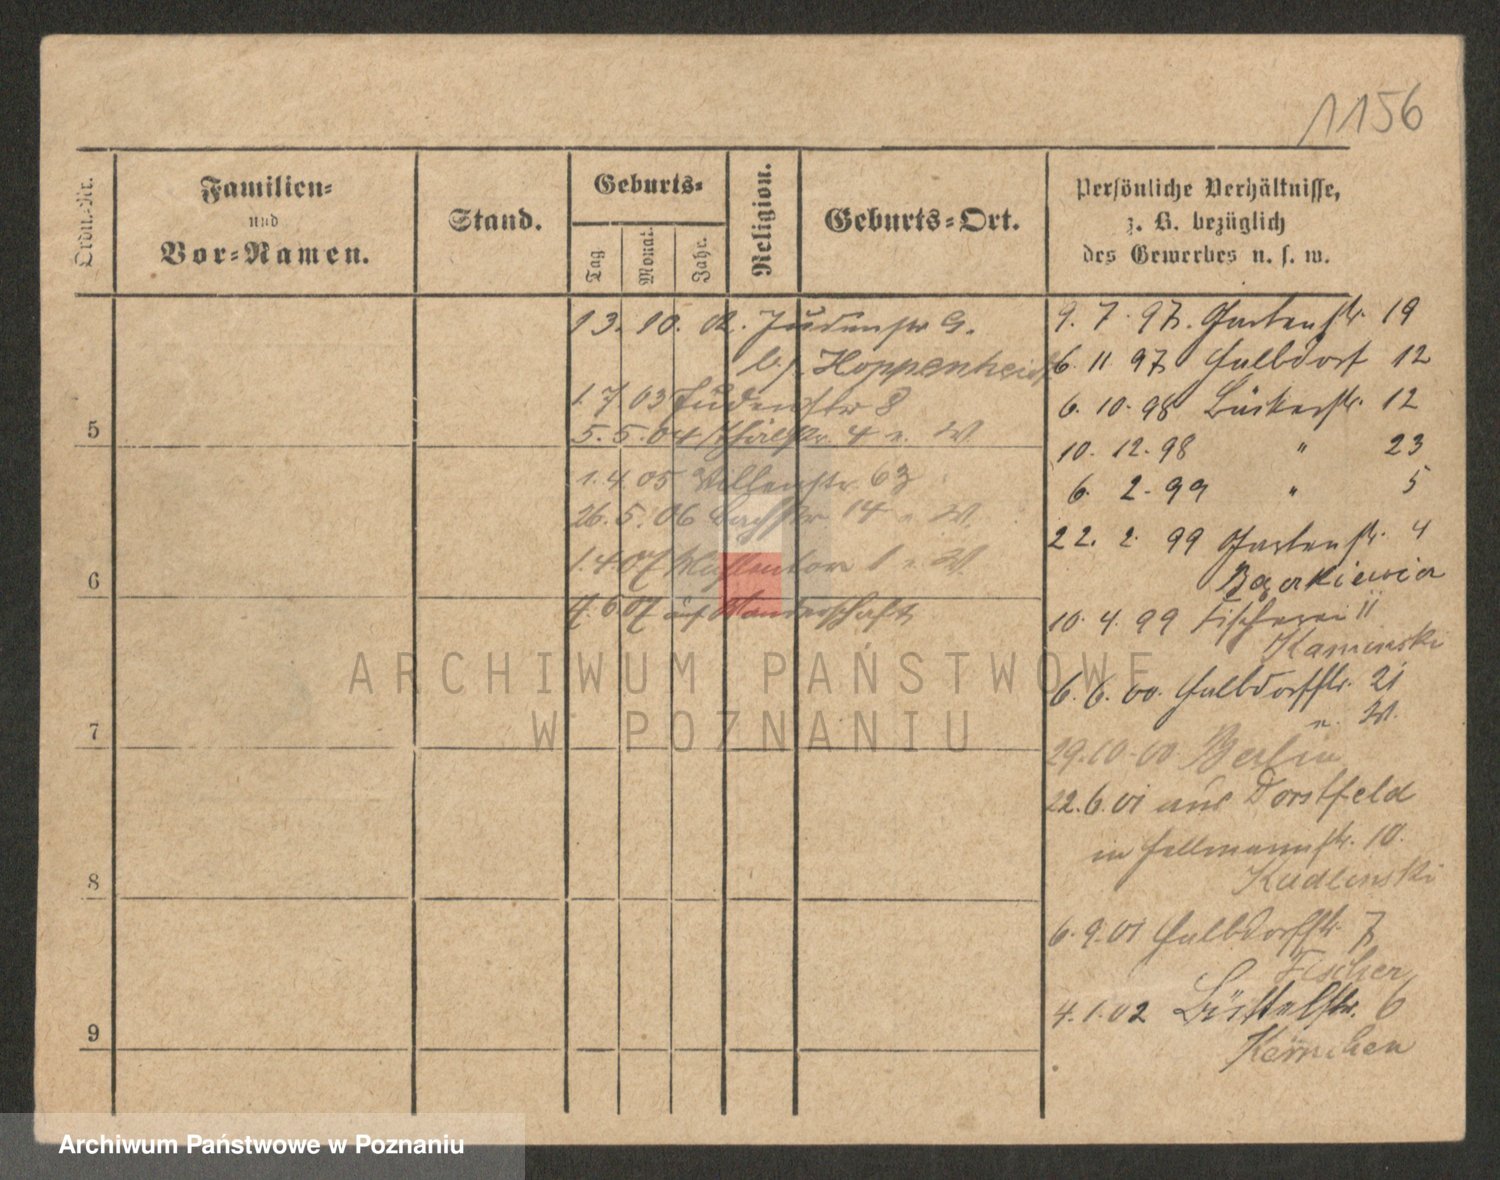 1156
Ordn.-Nr.
Familien-
und
Vor-Namen.
Stand.
Geburts-
Tag
Monat.
Jahr.
Religion.
Geburts-Ort.
Persönliche Verhältnisse,
z. B. bezüglich
des Gewerbes u. s. w.
13. 10. 02. Judenstr 9.
b/. Hoppenheidt
1. 7. 03 Judenstr 8
5. 5. 04 4 u. W.
1. 4. 05 63
26. 5. 06 14 u. W.
1. 4 07 1 u. W.
4. 6 07 auf Wanderschaft
5
6
7
8
9
9. 7. 97. Gartenstr. 19
6. 11 97 Halbdorf 12
6. 10. 98 Bäckerstr. 12
10. 12. 98 " 23
6. 2. 99 " 5
22. 2. 99 Gartenstr. 4
10. 4. 99 Fischerei 11
Kaminski
6. 6. 00. Halbdorfstr. 21
u. W.
29. 10. 00 Berlin
22. 6. 01 aus Dorstfeld
in 10.
Kudlinski
6. 9. 01 Halbdorfstr. 7
Fischer
4. 1. 02 Büttelstr. 6
ARCHIWUM PAŃSTWOWE
W POZNANIU
Archiwum Państwowe w Poznaniu